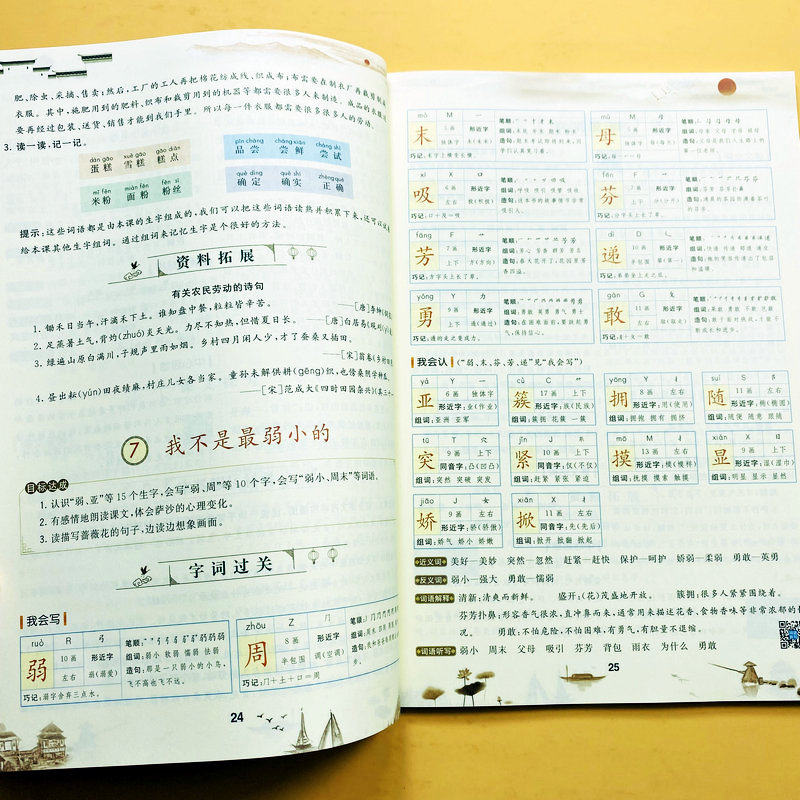 肥、除虫、采摘、售卖;然后,工厂的工人再把棉花纺成线、织成布;布需要在制衣厂再裁剪制成
衣服。其中,施肥用到的肥料、织布和裁剪用到的机器等都需要很多人来制造。成品的衣服还
要再经过包装、送货、销售才能到我们手里。所以每一件衣服都需要很多很多人的劳动。
3. 读一读,记一记。
dàn gāo xuě gāo gāo diǎn
蛋糕 雪糕 糕点
pǐn cháng cháng xiān cháng shì
品尝 尝鲜 尝试
mǐ fěn miàn fěn fěn sī
米粉 面粉 粉丝
què dìng què shí zhèng què
确定 确实 正确
提示:这些词语都是由本课的生字组成的,我们可以把这些词语读熟并积累下来,还可以试着
给本课其他生字组词。通过组词来记忆生字是个很好的方法。
资料拓展
有关农民劳动的诗句
1. 锄禾日当午,汗滴禾下土。谁知盘中餐,粒粒皆辛苦。
——[唐]李绅
2. 足蒸暑土气,背灼(zhuó)炎天光。力尽不知热,但惜夏日长。
——[唐]白居易《观刈
3. 绿遍山原白满川,子规声里雨如烟。乡村四月闲人少,才了蚕桑又插田。
——[宋]翁卷《乡村四
4. 昼出耘(yún)田夜绩麻,村庄儿女各当家。童孙未解供耕(gēng)织,也傍桑阴学种瓜。
——[宋]范成大《四时田园杂兴》(其三十一
7 我不是最弱小的
目标达成
1. 认识“弱、亚”等15个生字,会写“弱、周”等10个字,会写“弱小、周末”等词语。
2. 有感情地朗读课文,体会萨沙的心理变化。
3. 读描写蔷薇花的句子,边读边想象画面。
字词过关
我会写
ruò R 弓
弱 10画 形近字
左右 溺(溺爱)
组词:弱小 软弱 懦弱 怯弱
造句:那是一只弱小的小鸟,
飞不高也飞不远。
巧记:溺字舍弃三点水。
zhōu Z 冂
周 8画 形近字
半包围 调(空调)
巧记:冂+土+口=周
24
mò M 一
末 5画 形近字
独体字
巧记:木字上横生长横。
mǔ M
母 5画 形近字
xī X 口
吸 6画 形近字
左右
巧记:口+及=吸
fēn F
芬 7画 形近字
上下
巧记:分字头上长了草。
fāng F
芳 7画 形近字
上下 方(方向)
造句:春天花开了,花园里芳
香四溢。
巧记:方字头上长了草。
dì D 辶
递 10画 形近字
半包围 第(第一)
巧记:弟弟坐上走之底。
yǒng Y 力
勇 9画 形近字
上下 通(通过)
组词:勇敢 英勇 勇气 勇士
gǎn G
敢 11画 形近字
左右
我会认 (“弱、末、芬、芳、递”见“我会写”)
yà Y 一
亚 6画 独体字
形近字:业(作业)
组词:亚洲 亚军
cù C
簇 17画 上下
形近字:族(民族)
组词:簇拥 花簇 一簇
yōng Y 扌
拥 8画 左右
形近字:用(使用)
组词:拥抱 拥有 拥挤
suí S 阝
随 11画 左右
形近字:椭(椭圆)
组词:随便 随意 跟随
tū T 穴
突 9画 上下
同音字:凸(凸凹)
组词:突然 突破 突发
jǐn J
紧 10画 上下
同音字:仅(不仅)
组词:赶紧 紧张 紧迫
mō M 扌
摸 13画 左右
形近字:模(模样)
组词:抚摸 摸索 触摸
xiǎn X 日
显 9画 上下
形近字:湿(湿巾)
组词:明显 显示 显然
jiāo J 女
娇 9画 左右
形近字:骄(骄傲)
组词:娇气 娇小 娇嫩
xiān X 扌
掀 11画 左右
同音字:先(先后)
组词:掀开 掀翻 掀起
近义词 美好—美妙 突然—忽然 赶紧—赶快 保护—呵护 娇弱—柔弱 勇敢—英勇
反义词 弱小—强大 勇敢—懦弱
词语解释 清新:清爽而新鲜。 盛开:(花)茂盛地开放。 簇拥:很多人紧紧围绕着。
芬芳扑鼻:形容香气很浓,直冲鼻而来,通常用来描述花香、食物香味等非常浓郁的情
况。 勇敢:不怕危险,不怕困难,有勇气,有胆量不退缩。
词语听写 弱小 周末 父母 吸引 芬芳 背包 雨衣 为什么 勇敢
25